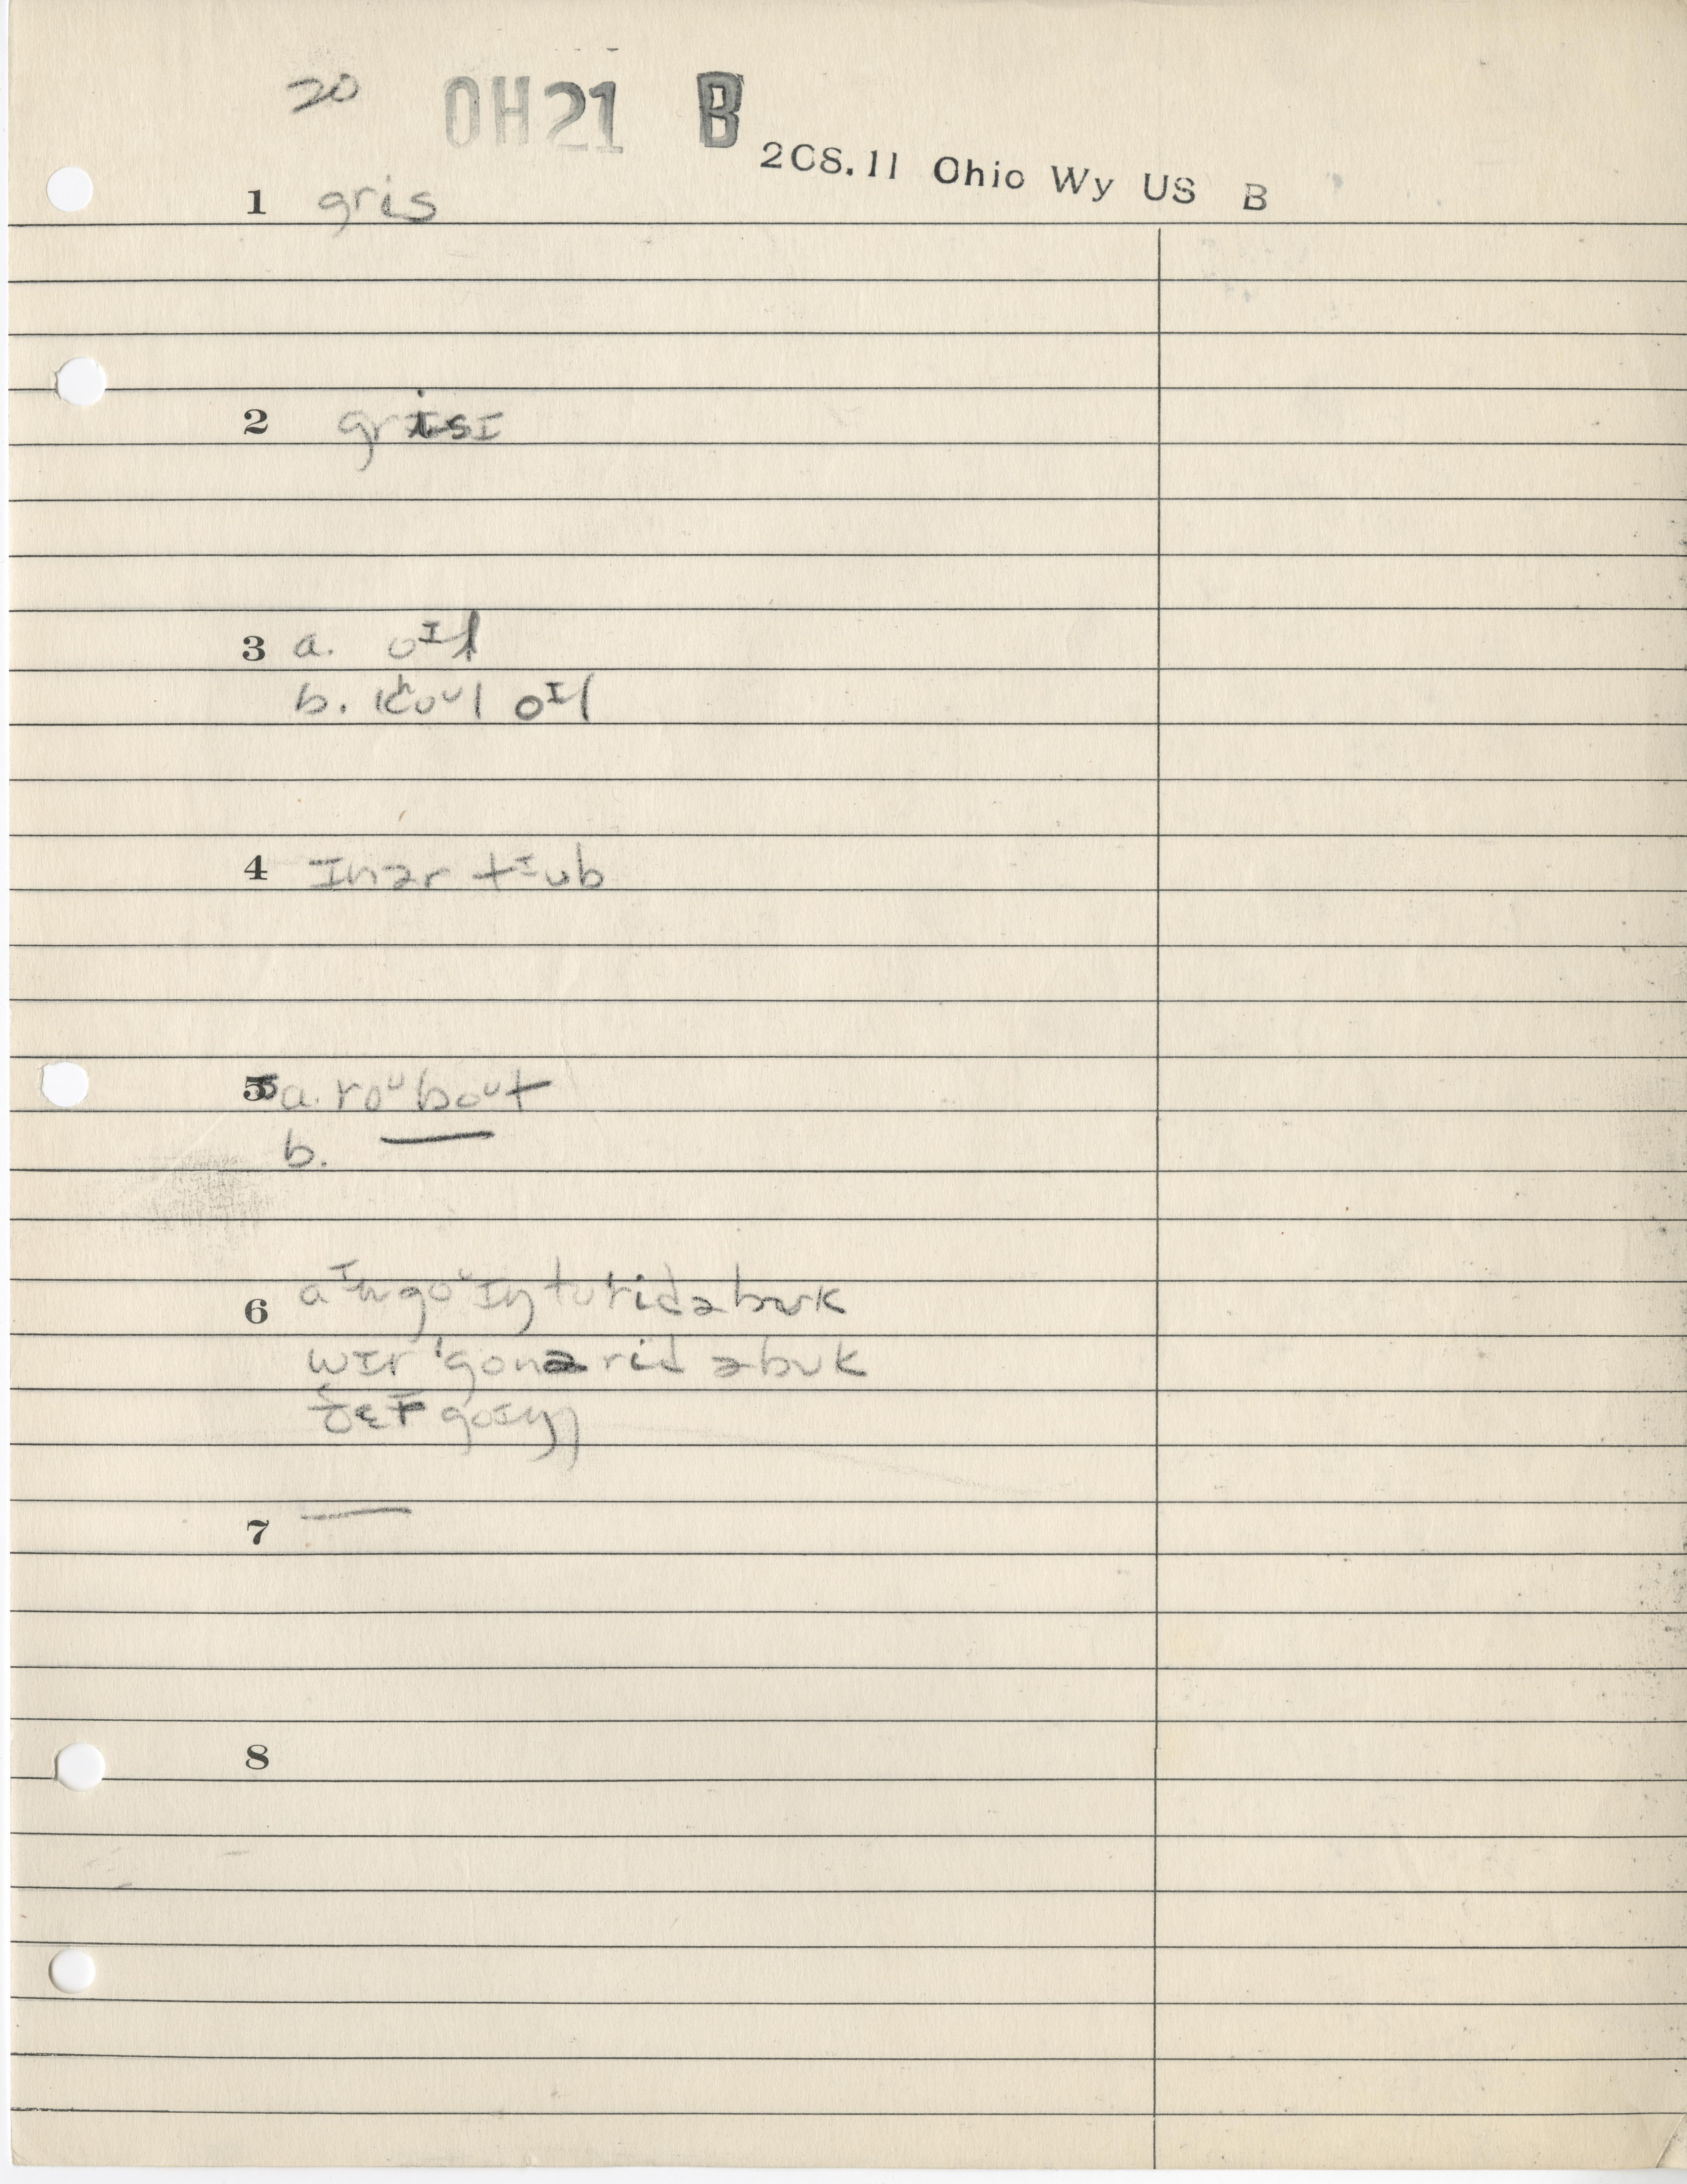 20 OH21 B
2CS.11 Ohio Wy US B
1 gris
2 grisɪ
3 a. oᴵl
b. kʰoᵁl oᴵl
4 ɪnər tᴵub
5 a. roᵘboᵘt
b. —
6 aᴵm goᵘɪŋ tu rid ə bʊk
wɪr 'gonə rid ə bʊk
ðɛr goɪŋ
7 —
8